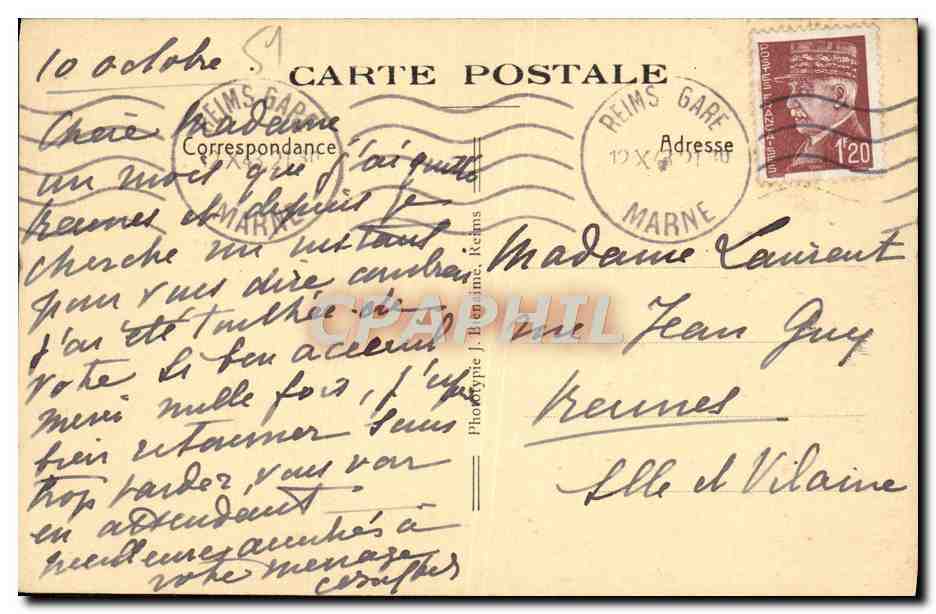 10 octobre
51
CARTE POSTALE
REIMS GARE
MARNE
Correspondance
REIMS GARE
12 X 43 21 30
MARNE
Adresse
1F20
Chère Madame
un mois que j'ai quitté
Rennes et depuis je
cherche un instant
pour vous dire combien
j'ai été touchée de
votre si bon accueil
merci mille fois, j'espère
bien retourner sans
trop tarder, vous voir
en attendant
meilleures amitiés à
votre ménage
Phototypie J. Bienaimé, Reims
CPAPHIL
Madame Laurent
rue Jean Guy
Rennes
Ille et Vilaine